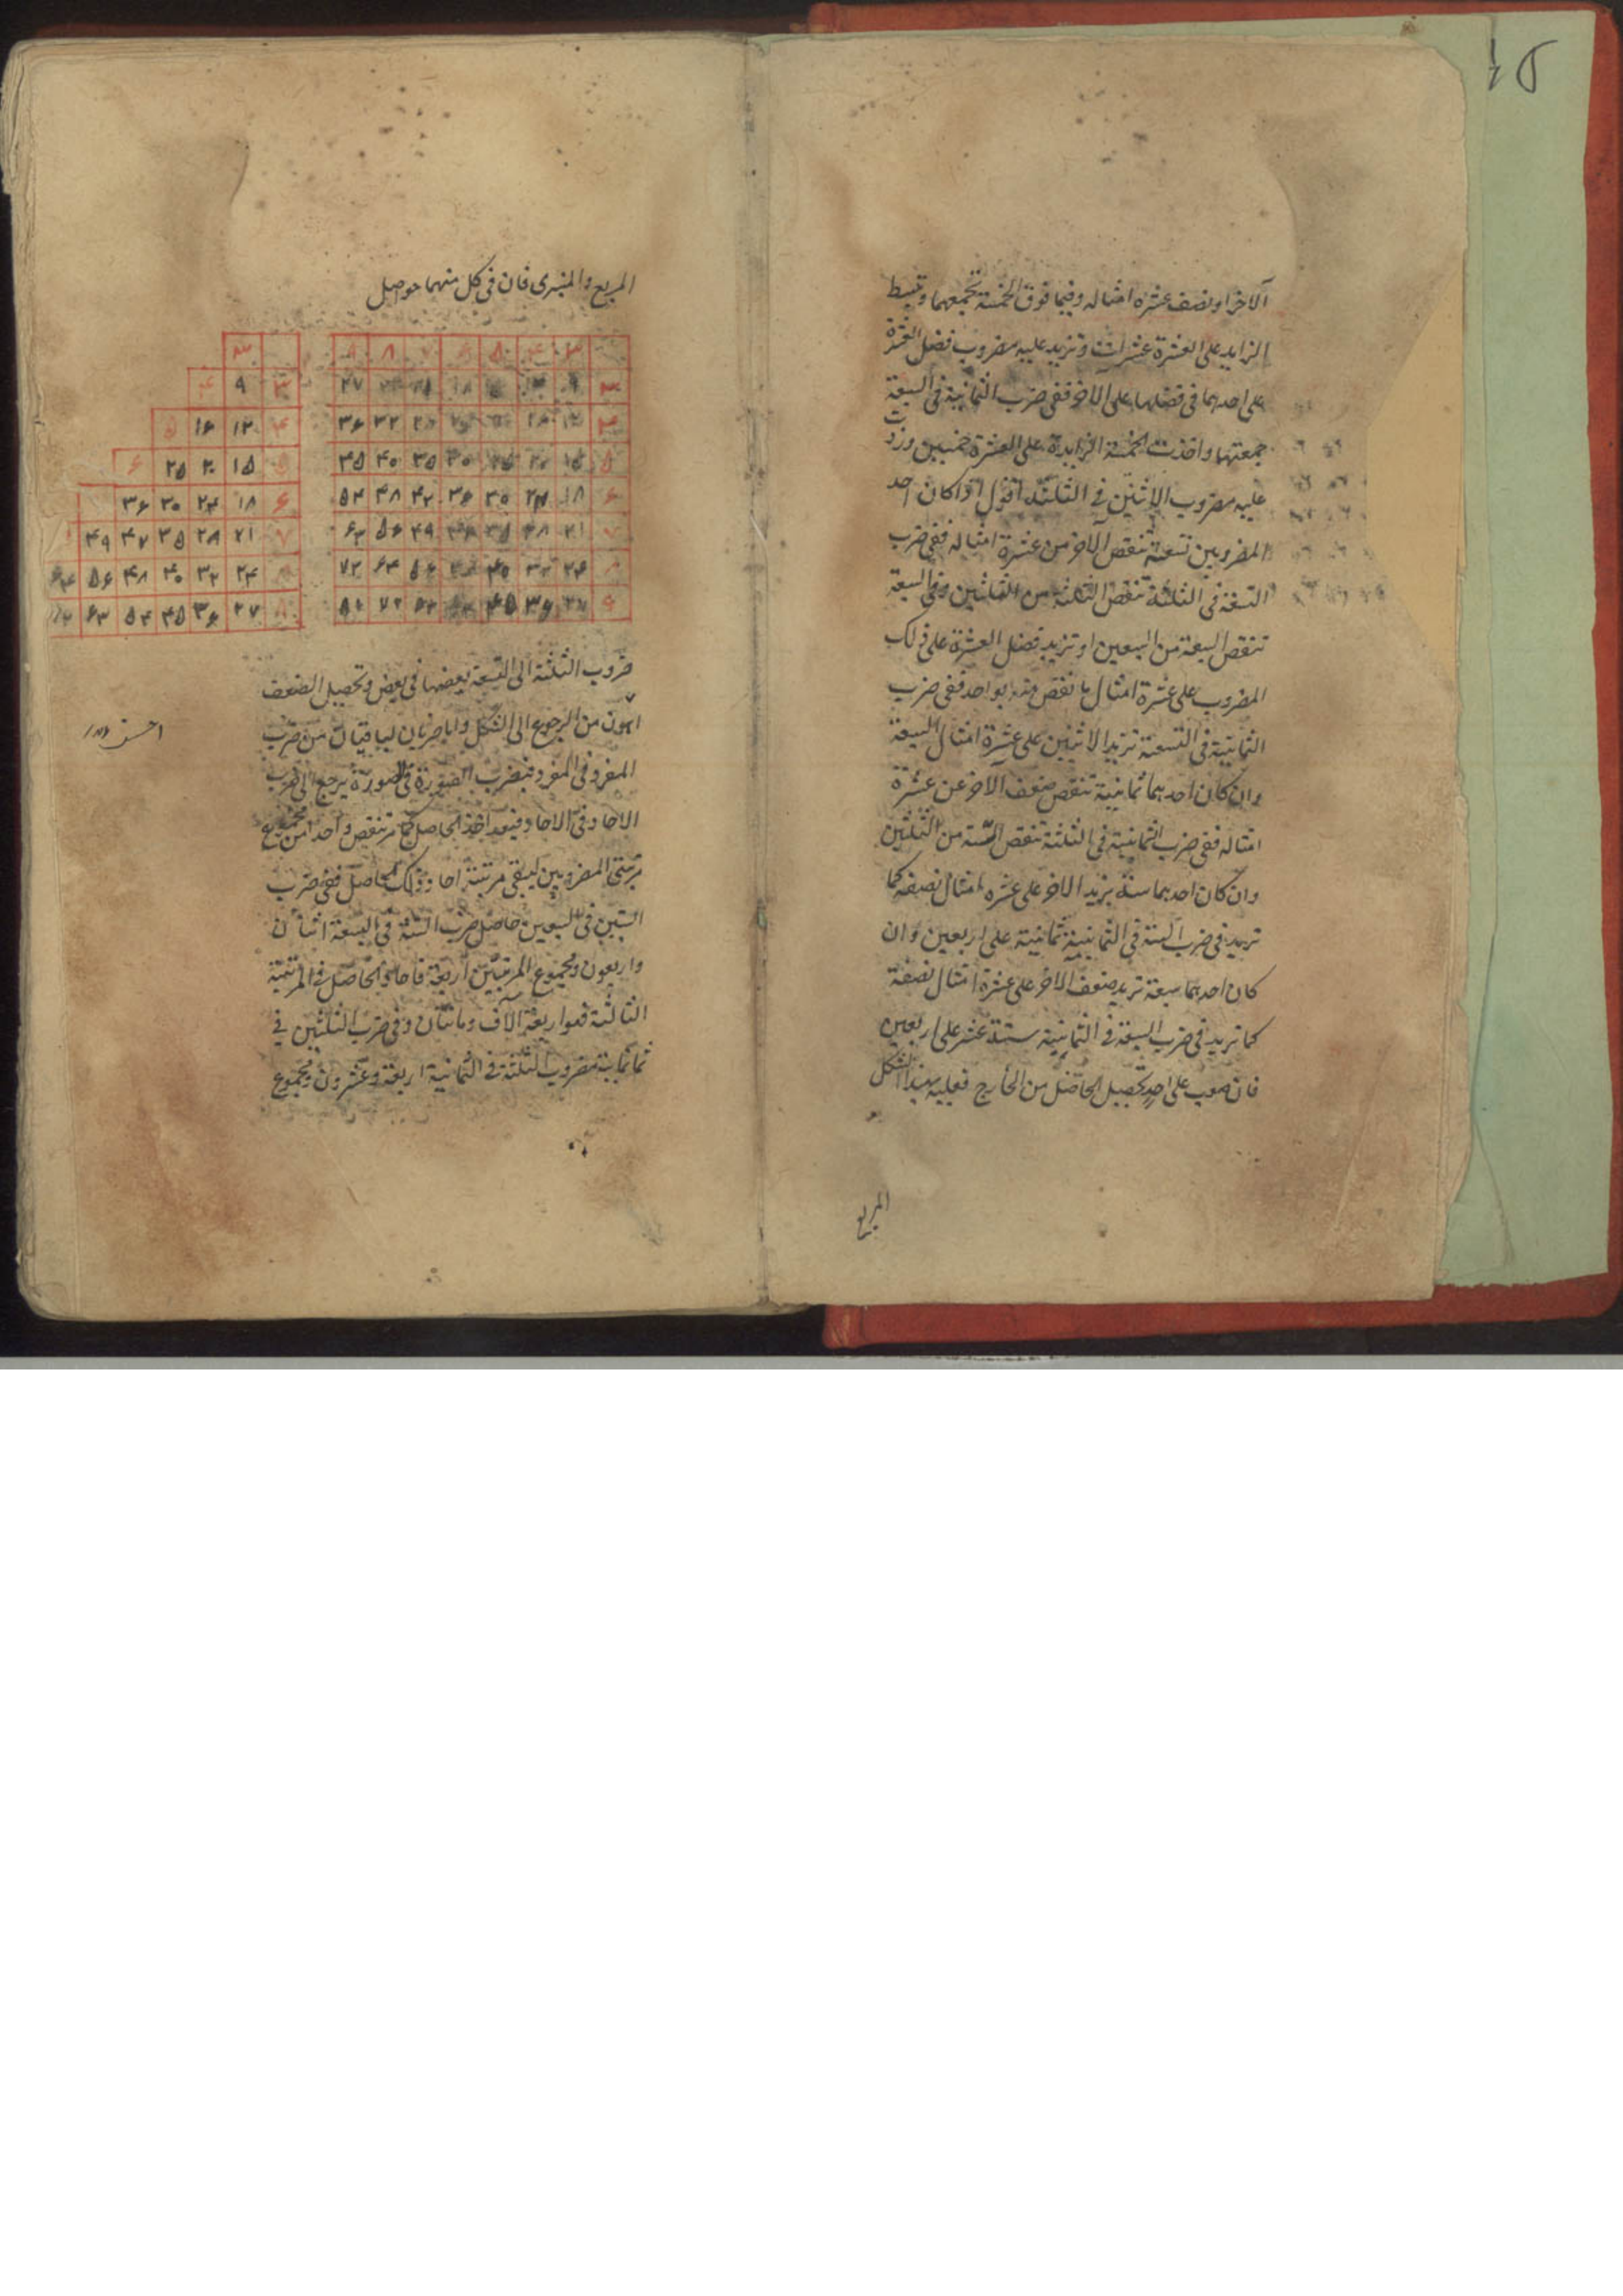 الآخر او نصف عشرة امثاله وفيما فوق الخمسة تجمعهما وتبسط
الزايد على العشرة عشرات وتزيد عليه مضروب فضل العشرة
على احدهما في فضلها على الآخر ففي ضرب الثمانية في السبعة
جمعتهما واخذت الخمسة الزايدة على العشرة خمسين وزدت
عليه مضروب الاثنين في الثلثة اقول اذا كان احد
المضروبين تسعة تنقص الآخر من عشرة امثاله ففي ضرب
التسعة في الثلثة تنقص الثلثة من الثلثين وفي السبعة
تنقص السبعة من السبعين او تزيد فضل العشرة على ذلك
المضروب على عشرة امثال ما نقص منه بواحد ففي ضرب
الثمانية في التسعة تزيد الاثنين على عشرة امثال السبعة
وان كان احدهما ثمانية تنقص ضعف الآخر عن عشرة
امثاله ففي ضرب الثمانية في الثلثة تنقص الستة من الثلثين
وان كان احدهما ستة يزيد الاخر على عشره امثال نصفه كما
تزيد في ضرب الستة في الثمانية ثمانية على اربعين وان
كان احدهما سبعة تزيد ضعف الاخر على عشرة امثال نصفه
كما تزيد في ضرب السبعة في الثمانية ستة عشر على اربعين
فان صعب على احد تحصيل الحاصل من الخارج فعليه بهذا الشكل
المربع
المربع والمنبرى فان في كل منهما حواصل
۳ ۴ ۵ ۶ ۷ ۸ ۹
۳ ۹ ۲۷
۴ ۱۲ ۳۲ ۳۶
۵ ۱۵ ۲۰ ۲۵ ۳۰ ۳۵ ۴۰ ۴۵
۶ ۱۸ ۲۴ ۳۰ ۳۶ ۴۲ ۴۸ ۵۴
۷ ۲۱ ۲۸ ۳۵ ۴۹ ۵۶ ۶۳
۸ ۲۴ ۳۲ ۴۰ ۵۶ ۶۴ ۷۲
۹ ۲۷ ۳۶ ۴۵ ۷۲
۳
۳ ۹ ۴
۴ ۱۲ ۱۶ ۵
۵ ۱۵ ۲۰ ۲۵ ۶
۶ ۱۸ ۲۴ ۳۰ ۳۶
۷ ۲۱ ۲۸ ۳۵ ۴۷ ۴۹
۸ ۲۴ ۳۲ ۴۰ ۴۸ ۵۶ ۶۴
۲۷ ۳۶ ۴۵ ۵۴ ۶۳
ضروب الثلثة الى التسعة بعضها في بعض وتحصيل الضعف
اهون من الرجوع الى الشكل واما ضربان لباقيتان من ضرب
المفرد في المفرد فبضرب الصورة في الصورة يرجع الى ضرب
الاحاد في الاحاد فبعد اخذ الحاصل كما مر تنقص واحدا من مجموع
مرتبتي المضروبين ليبقى مرتبة احاد ذلك الحاصل ففي ضرب
الستين في السبعين حاصل ضرب الستة في السبعة اثنان
واربعون ومجموع المرتبتين اربعة فاحاد الحاصل في المرتبة
الثالثة فهو اربعة آلاف ومائتان وفي ضرب الثلثين في
ثمانماية مضروب الثلثة في الثمانية اربعة وعشرون ومجموع